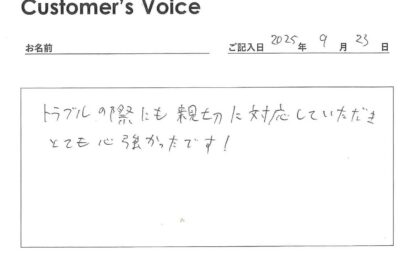 Customer's Voice
お名前
ご記入日 2025 年 9 月 23 日
トラブルの際にも親切に対応していただき
とても心強かったです!